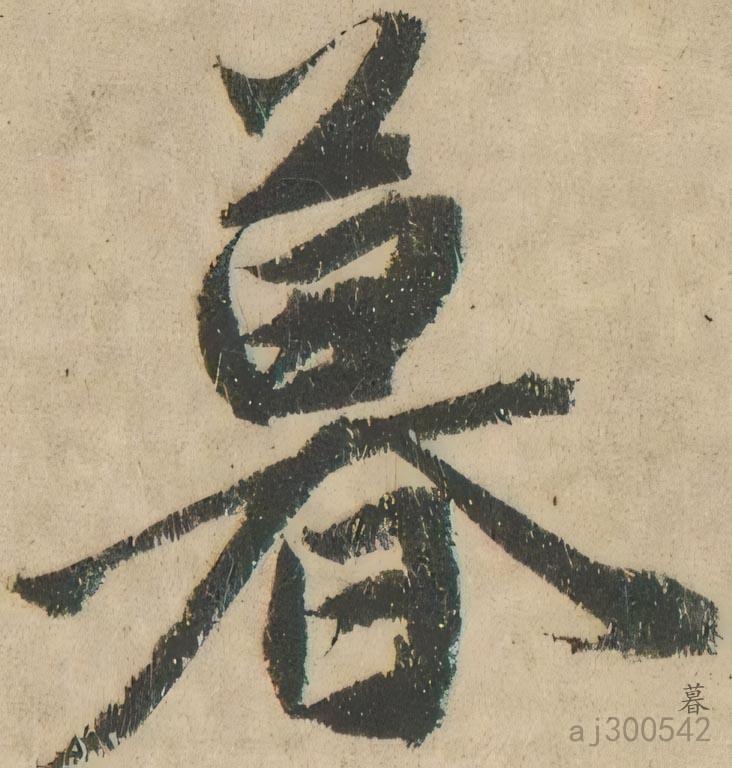 暮
暮
aj300542